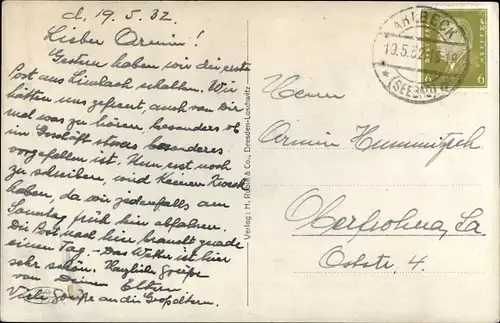 d. 19.5.32
Lieber Armin!
Gestern haben wir die erste
Post aus Limbach erhalten. Wir
hätten uns gefreut, auch von Dir
mal was zu hören besonders ob
im Geschäft etwas besonderes
vorgefallen ist. Nun erst noch
zu schreiben, wird keinen Zweck
haben, da wir jedenfalls am
Sonntag früh hin abfahren.
Die Post nach hin braucht gerade
einen Tag. - Das Wetter ist hier
sehr schön. Herzliche Grüße
von Deinen Eltern
Viele Grüße an die Großeltern.
Verlag: H. Rubin & Co., Dresden-Loschwitz
AHLBECK
19.5.32
(SEEBAD)
6 6
Herrn
Armin Hemmitzsch
Oberfrohna, Sa
Oststr. 4.